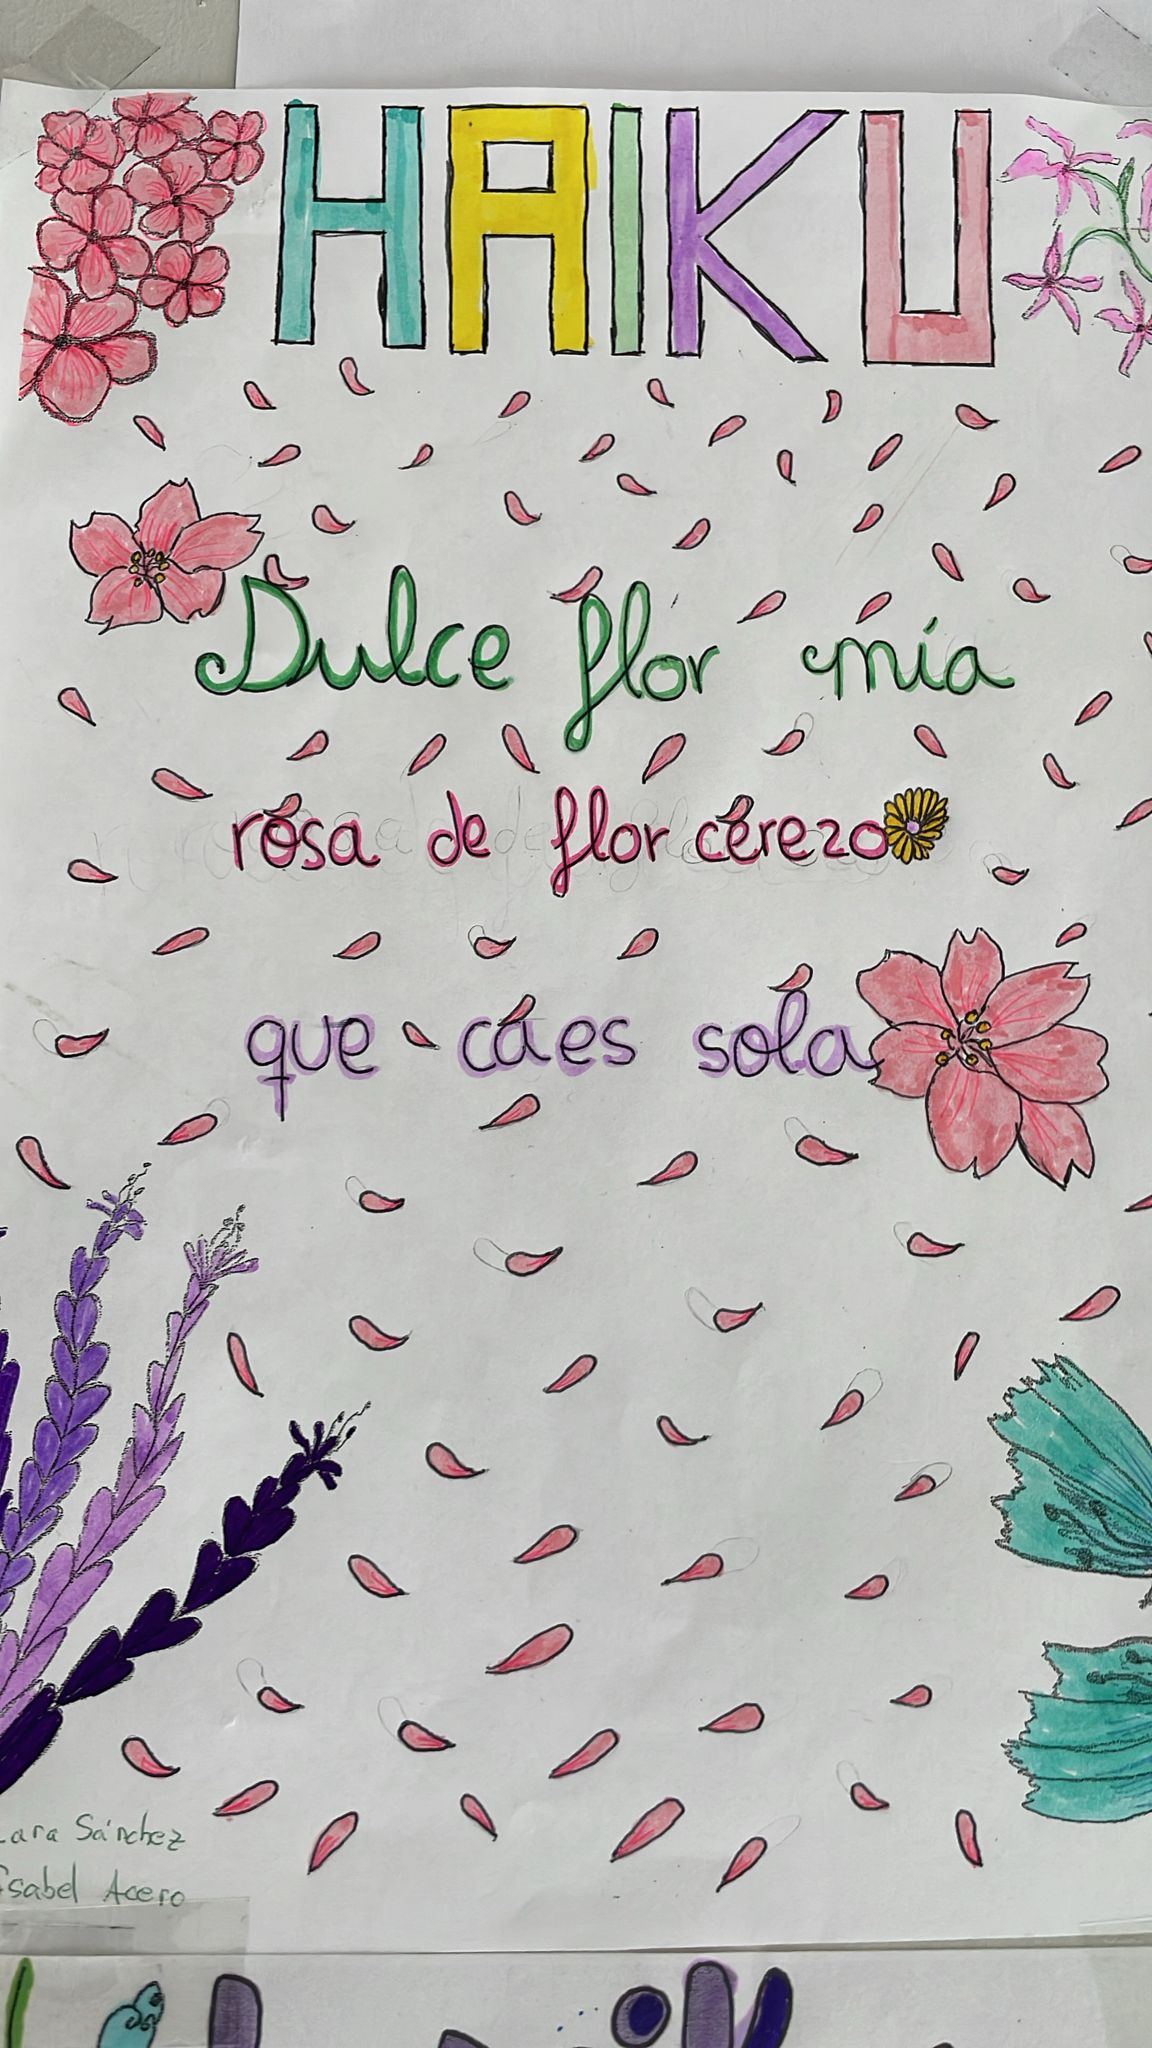 HAIKU
Dulce flor mía
rosa de flor cerezo
que caes sola
Lara Sánchez
Isabel Acero